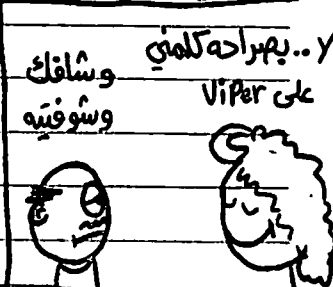 لا.. بصراحه كلمني
على Viper
وشافك
وشوفتيه